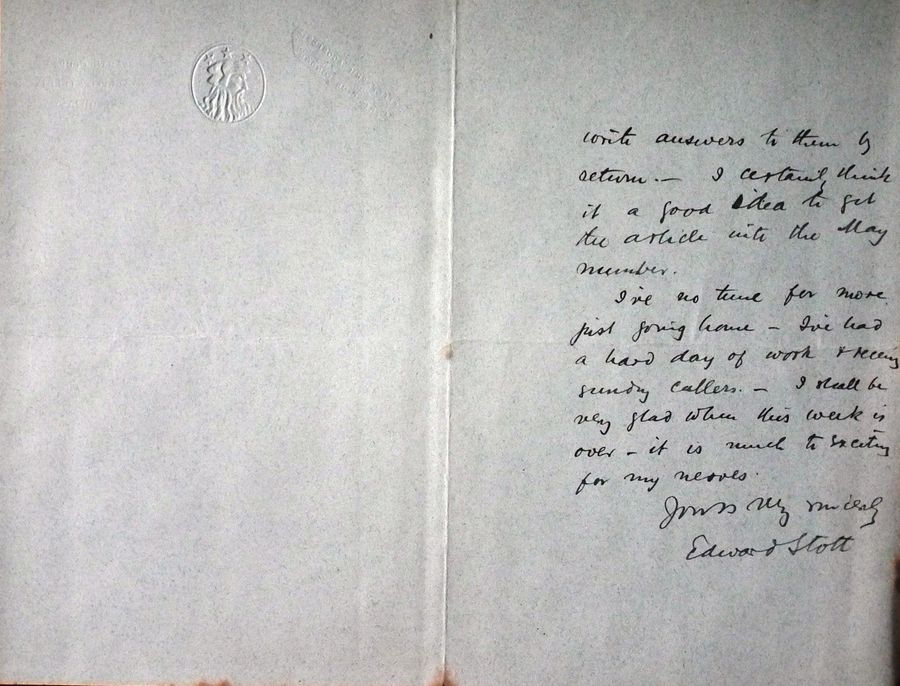 write answers to them by
return. — I certainly think
it a good idea to get
the article into the May
number.
I've no time for more
just going home — I've had
a hard day of work & seeing
sundry callers. — I shall be
very glad when this week is
over — it is much to exciting
for my nerves.
Yours very sincerely
Edward Stott